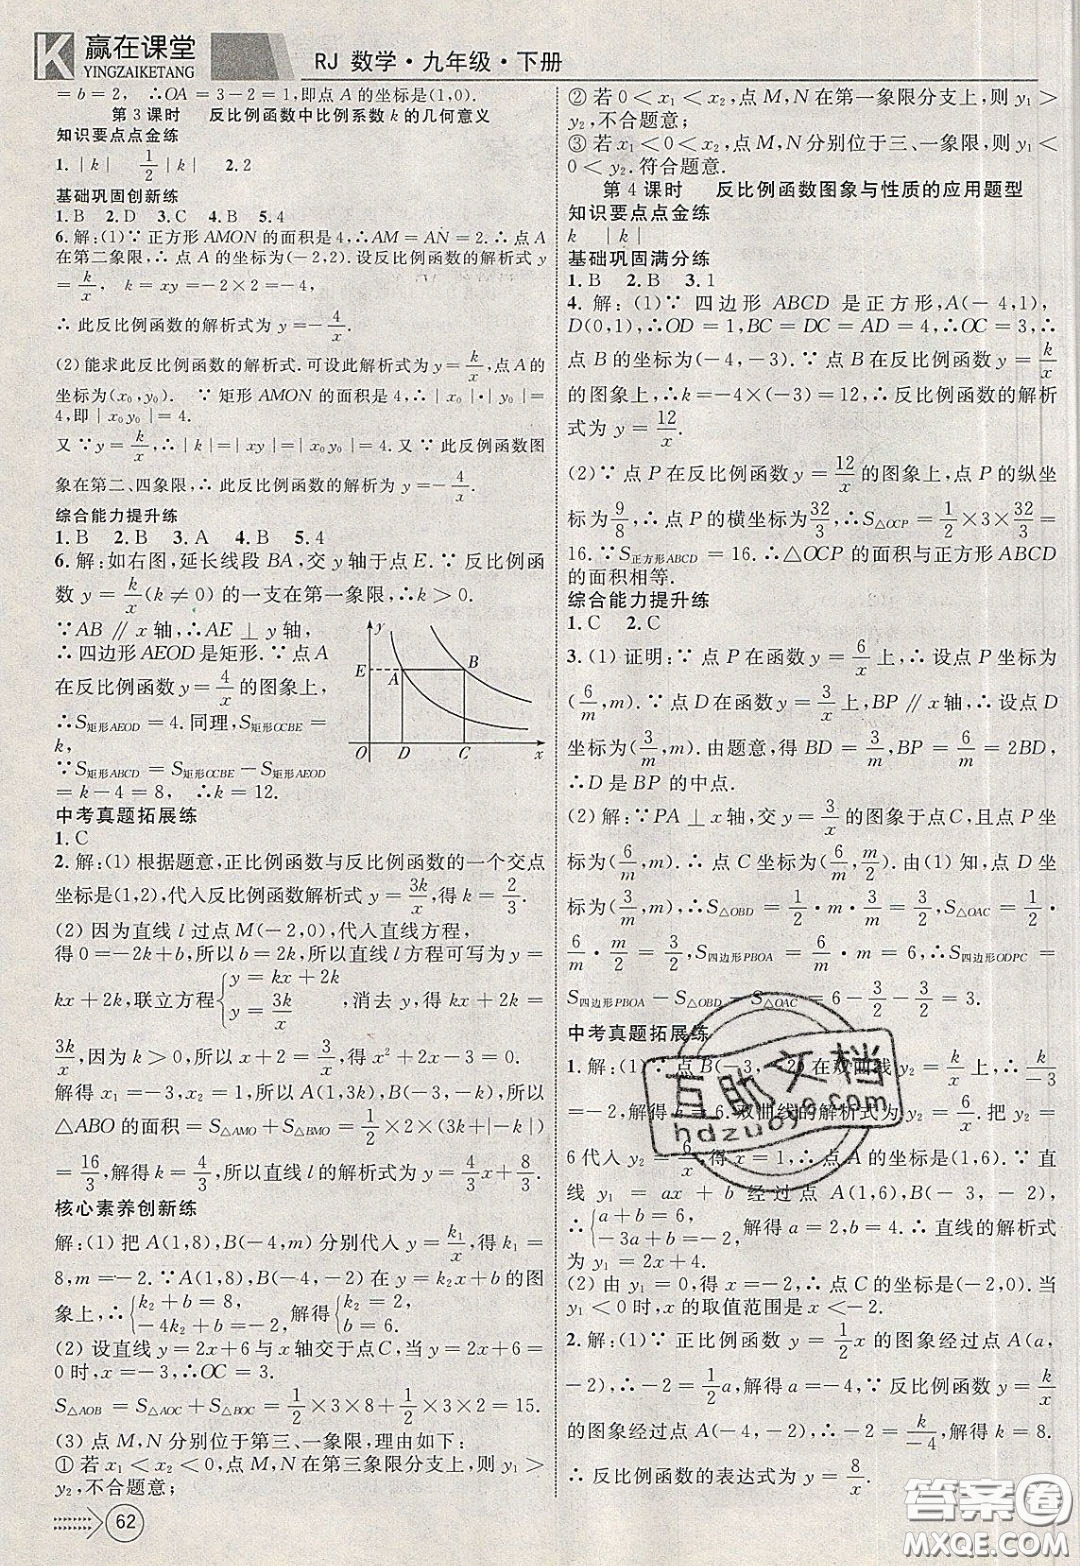 赢在课堂
YINGZAIKETANG
RJ 数学·九年级·下册
=b=2, ∴OA=3-2=1,即点A的坐标是(1,0).
第3课时 反比例函数中比例系数k的几何意义
知识要点点金练
1.|k| 1/2|k| 2.2
基础巩固创新练
1.B 2.D 3.C 4.B 5.4
6.解:(1)∵正方形AMON的面积是4,∴AM=AN=2.∴点A
在第二象限,∴点A的坐标为(-2,2).设反比例函数的解析式y
=k/x,∴k=xy=-2×2=-4,
∴此反比例函数的解析式为y=-4/x.
(2)能求此反比例函数的解析式.可设此解析式为y=k/x,点A的
坐标为(x₀,y₀). ∵矩形AMON的面积是4,∴|x₀|·|y₀|=
4,即|x₀y₀|=4.
又∵y=k/x,∴|k|=|xy|=|x₀y₀|=4.又∵此反例函数图
象在第二、四象限,∴此反比例函数的解析式为y=-4/x.
综合能力提升练
1.B 2.B 3.A 4.B 5.4
6.解:如右图,延长线段BA,交y轴于点E.∵反比例函
数y=k/x(k≠0)的一支在第一象限,∴k>0.
∵AB∥x轴,∴AE⊥y轴,
∴四边形AEOD是矩形.∵点A
在反比例函数y=4/x的图象上,
∴S矩形AEOD=4.同理,S矩形OCBE=
k,
∵S矩形ABCD=S矩形OCBE-S矩形AEOD
=k-4=8, ∴k=12.
y
E A B
O D C x
中考真题拓展练
1.C
2.解:(1)根据题意,正比例函数与反比例函数的一个交点
坐标是(1,2),代入反比例函数解析式y=3k/x,得k=2/3.
(2)因为直线l过点M(-2,0),代入直线方程,
得0=-2k+b,所以b=2k,所以直线l方程可写为y=
kx+2k,联立方程{y=kx+2k y=3k/x ,消去y,得kx+2k=
3k/x,因为k>0,所以x+2=3/x,得x²+2x-3=0.
解得x₁=-3,x=1,所以A(1,3k),B(-3,-k),所以
△ABO的面积=S△AMO+S△BMO=1/2×2×(3k+|-k|)
=16/3,解得k=4/3,所以直线l的解析式为y=4/3x+8/3.
核心素养创新练
解:(1)把A(1,8),B(-4,m)分别代入y=k₁/x,得k₁=
8,m=-2.∵A(1,8),B(-4,-2)在y=k₂x+b的图
象上,∴{k₂+b=8, -4k₂+b=-2, 解得{k₂=2, b=6.
(2)设直线y=2x+6与x轴交于点C,当y=2x+6=
0时,x=-3,∴OC=3.
S△AOB=S△AOC+S△BOC=1/2×3×8+1/2×3×2=15.
(3)点M,N分别位于第三、一象限,理由如下:
①若x₁<x₂<0,点M,N在第三象限分支上,则y₁>
y₂,不合题意;
62
②若0<x₁<x₂,点M,N在第一象限分支上,则y₁>
y₂,不合题意;
③若x₁<0<x₂,点M,N分别位于三、一象限,则y₁<0
0<y₂.符合题意.
第4课时 反比例函数图象与性质的应用题型
知识要点点金练
k |k|
基础巩固满分练
1.B 2.B 3.1
4.解:(1)∵四边形ABCD是正方形,A(-4,1),
D(0,1),∴OD=1,BC=DC=AD=4,∴OC=3,∴
点B的坐标为(-4,-3).∵点B在反比例函数y=k/x
的图象上,∴k=-4×(-3)=12,∴反比例函数的解析
式为y=12/x.
(2)∵点P在反比例函数y=12/x的图象上,点P的纵坐
标为9/8,∴点P的横坐标为32/3,∴S△OCP=1/2×3×32/3=
16.∵S正方形ABCD=16.∴△OCP的面积与正方形ABCD
的面积相等.
综合能力提升练
1.C 2.C
3.(1)证明:∵点P在函数y=6/x上,∴设点P坐标为
(6/m,m).∵点D在函数y=3/x上,BP∥x轴,∴设点D
坐标为(3/m,m).由题意,得BD=3/m,BP=6/m=2BD,
∴D是BP的中点.
(2)解:∵PA⊥x轴,y=3/x的图象于点C,且点P坐
标为(6/m,m).∴点C坐标为(6/m,m/2).由(1)知,点D坐
标为(3/m,m),∴S△OBD=1/2·m·3/m=3/2,S△OAC=1/2·
6/m·m/2=3/2,S四边形PBOA=6/m·m=6,∴S四边形ODPC=
S四边形PBOA-S△OBD-S△OAC=6-3/2-3/2=3.
中考真题拓展练
1.解:(1)∵点B(-3,-2)在双曲线y₂=k/x上,∴k/-3
=-2,解得k=6.双曲线的解析式为y₂=6/x.把y₂=
6代入y₂=6/x,得x=1,∴点A的坐标为(1,6).∵直
线y₁=ax+b经过点A(1,6),B(-3,-2),
∴{a+b=6, -3a+b=-2, 解得a=2,b=4.∴直线的解析式
为y₁=2x+4.
(2)由y₁=0,得x=-2,∴点C的坐标为(-2,0).当
y₁<0时,x的取值范围是x<-2.
2.解:(1)∵正比例函数y=1/2x的图象经过点A(a,
-2),∴-2=1/2a,解得a=-4,∵反比例函数y=k/x
的图象经过点A(-4,-2),∴-2=k/-4,解得k=8.
∴反比例函数的表达式为y=8/x.
互助文档
hdzuoye.com
答案圈
MXQE.COM